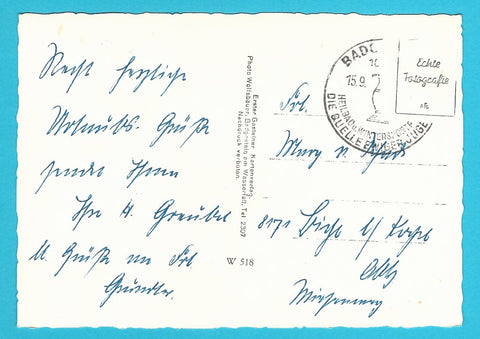 Recht herzliche
Urlaubs-Grüße
sendet Ihnen
Ihr H. Greubel
u. Grüße an Frl.
Gründler.
Erster Gasteiner - Kartenverlag,
Photo Wolfsbauer, Badgastein am Wasserfall, Tel. 2307
Nachdruck verboten.
W 518
BADG
15.9.
HEILBAD u. WINTERSPORTE
DIE QUELLE EWIGER JUGE
Echte
Fotografie
Frl.
Mary v.
8171 Bichl b/ Tölz
Obb